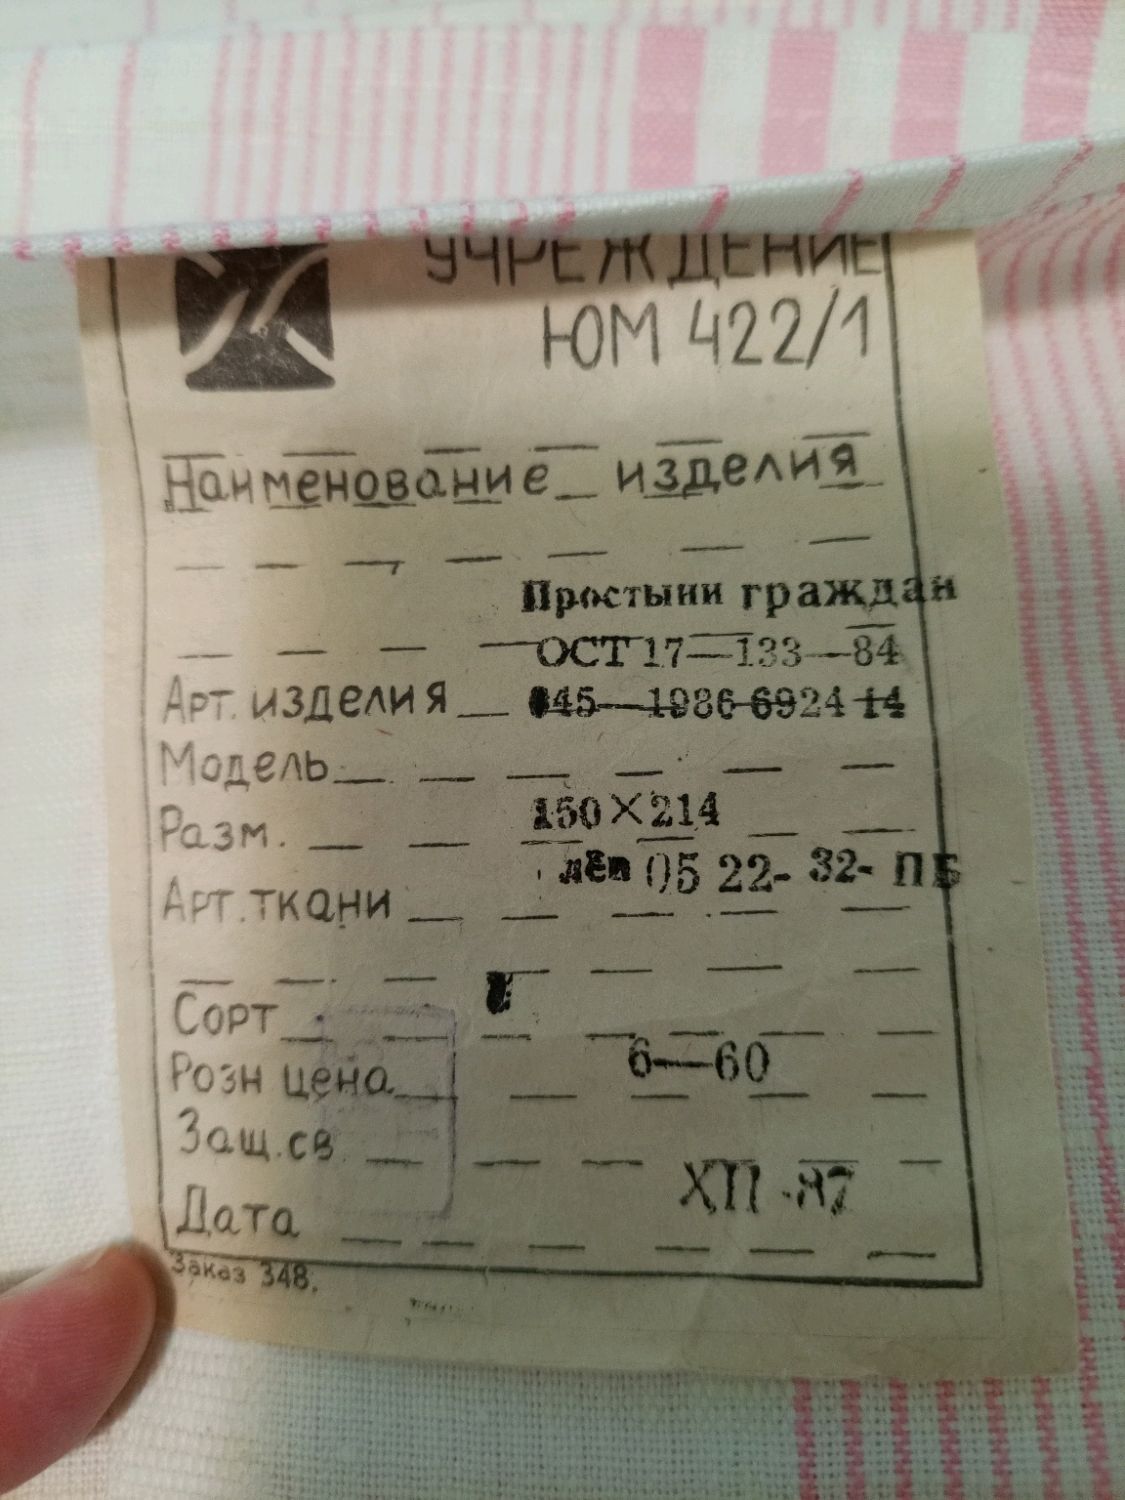 УЧРЕЖДЕНИЕ
ЮМ 422/1
Наименование изделия
Простыни граждан
ОСТ 17—133—84
Арт. изделия 845—1986 6924 14
Модель
Разм. 150×214
Арт. ткани лён 05 22- 32- ПБ
Сорт
Розн цена 6—60
Защ. св
Дата XII -87
Заказ 348.